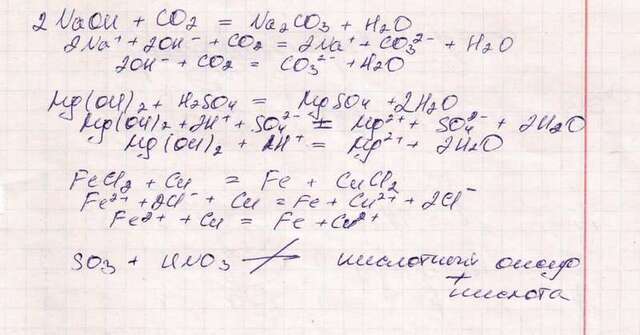 2NaOH + CO2 = Na2CO3 + H2O
2Na⁺ + 2OH⁻ + CO2 = 2Na⁺ + CO3²⁻ + H2O
2OH⁻ + CO2 = CO3²⁻ + H2O
Mg(OH)2 + H2SO4 = MgSO4 + 2H2O
Mg(OH)2 + 2H⁺ + SO4²⁻ = Mg²⁺ + SO4²⁻ + 2H2O
Mg(OH)2 + 2H⁺ = Mg²⁺ + 2H2O
FeCl2 + Cu = Fe + CuCl2
Fe²⁺ + 2Cl⁻ + Cu = Fe + Cu²⁺ + 2Cl⁻
Fe²⁺ + Cu = Fe + Cu²⁺
SO3 + HNO3 ≠ кислотный оксид
+
кислота